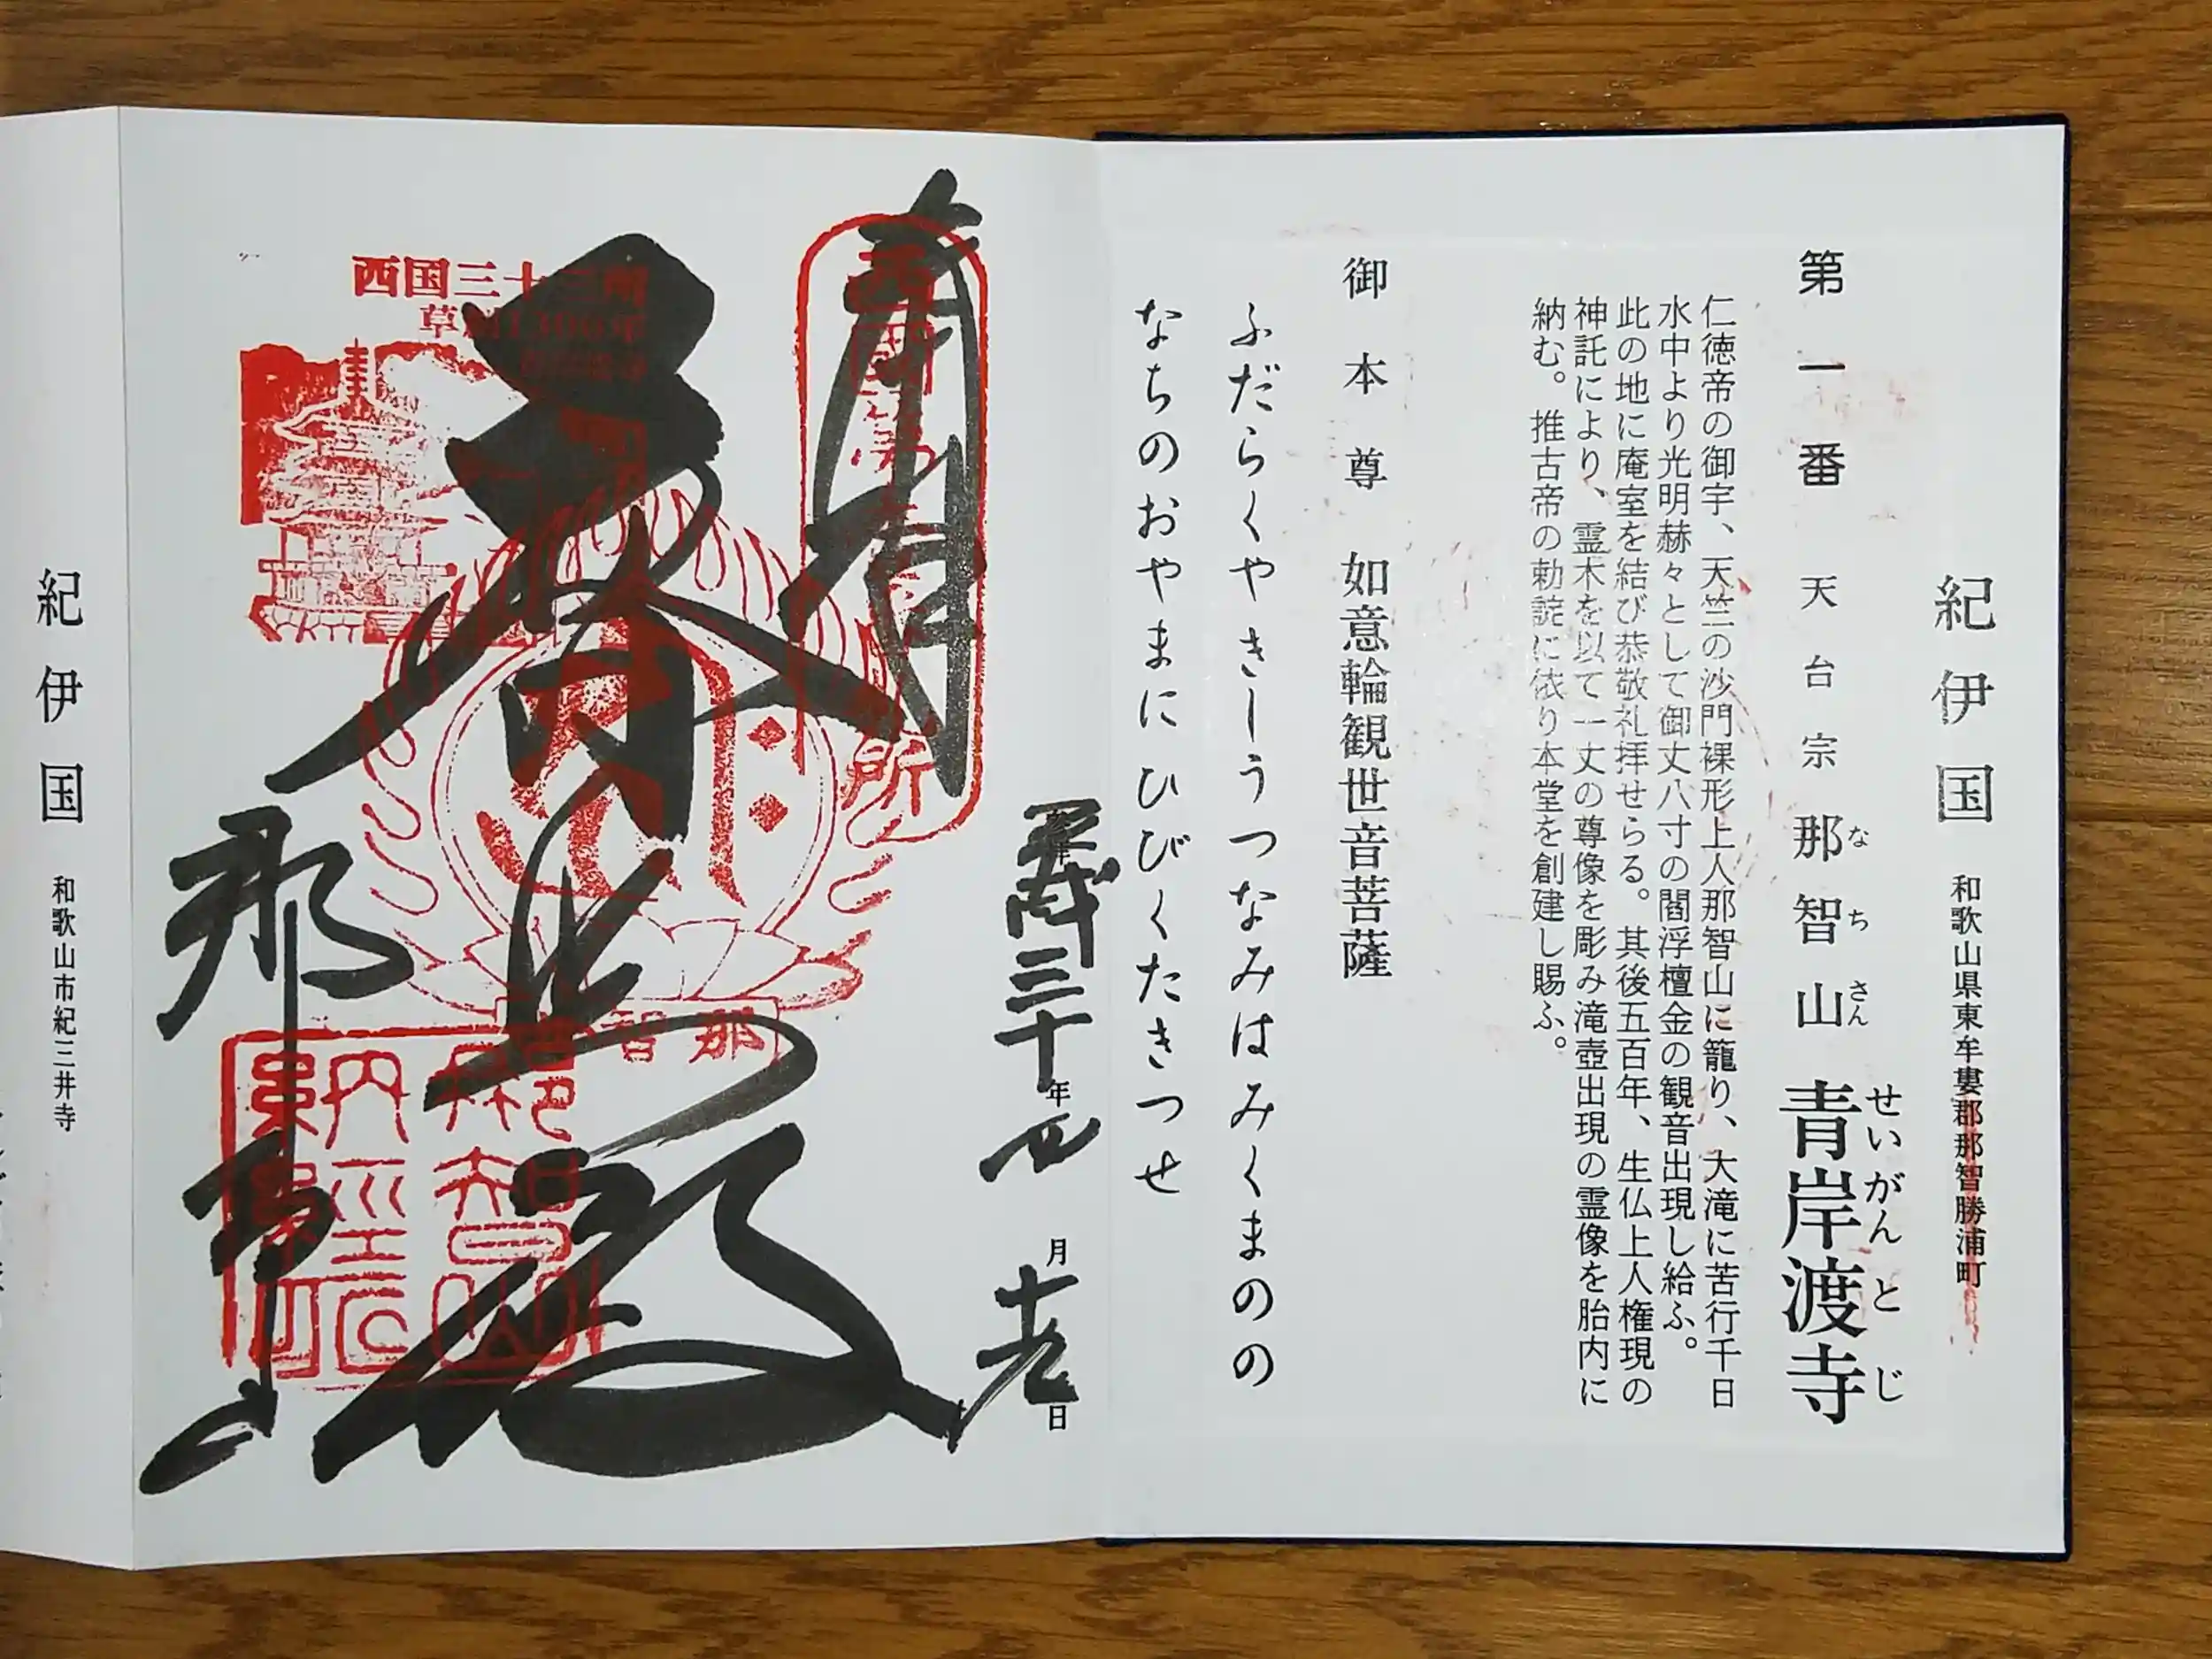 紀伊国 和歌山県東牟婁郡那智勝浦町
第一番 天台宗 那智山 青岸渡寺
なちさん せいがんとじ
仁徳帝の御宇、天竺の沙門裸形上人那智山に籠り、大滝に苦行千日
水中より光明赫々として御丈八寸の閻浮檀金の観音出現し給ふ。
此の地に庵室を結び恭敬礼拝せらる。其後五百年、生仏上人権現の
神託により、霊木を以て一丈の尊像を彫み滝壺出現の霊像を胎内に
納む。推古帝の勅諚に依り本堂を創建し賜ふ。
御本尊 如意輪観世音菩薩
ふだらくやきしうつなみはみくまのの
なちのおやまにひびくたきつせ
三十年四月十九日
西国三十三所
草創1300年
那智
那智山
納経印
那智山
紀伊国 和歌山市紀三井寺